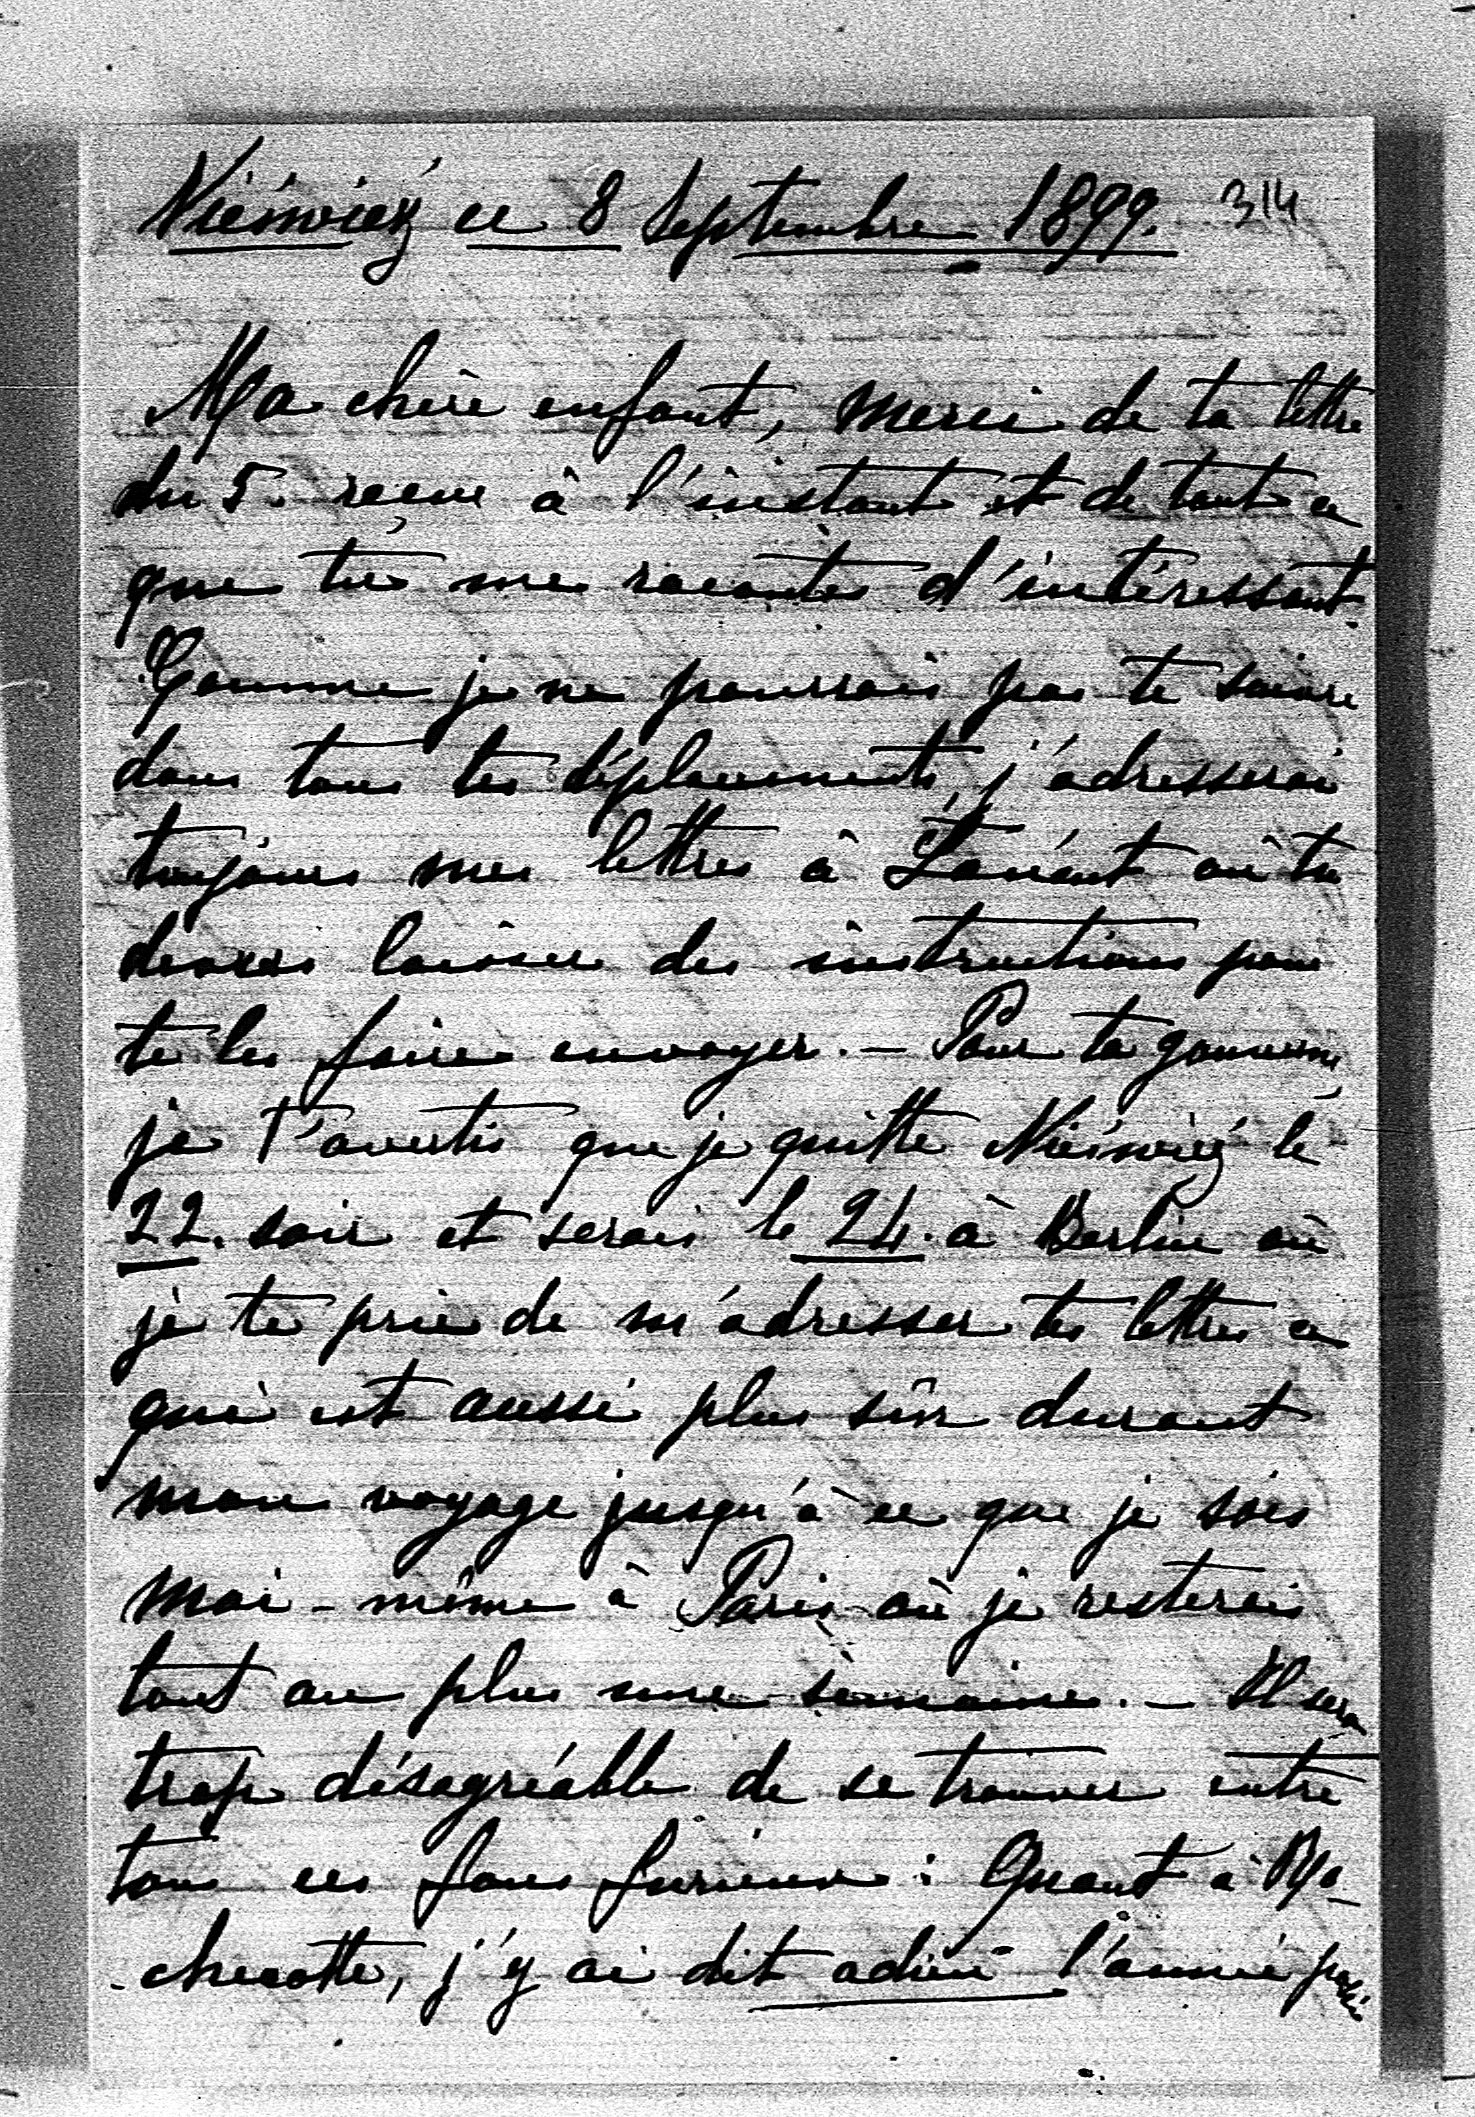 Nieśwież ce 8 Septembre 1899. 314
Ma chère enfant, merci de ta lettre
du 5. reçue à l'instant et de tout ce
que tu me racontes d'intéressant.
Comme je ne pourrais pas te suivre
dans tous tes déplacements, j'adresserai
toujours mes lettres à Lanéant où tu
devras laisser des instructions pour
te les faire envoyer. — Pour ta gouverne
je t'avertis que je quitte Nieśwież le
22. soir et serais le 24. à Berlin où
je te prie de m'adresser tes lettres ce
qui est aussi plus sûr durant
mon voyage jusqu'à ce que je sois
moi-même à Paris où je resterais
tout au plus une semaine. — Il sera
trop désagréable de se trouver entre
tous ces fous furieux: Quant à Ro-
-checotte, j'y ai dit adieu l'année passée